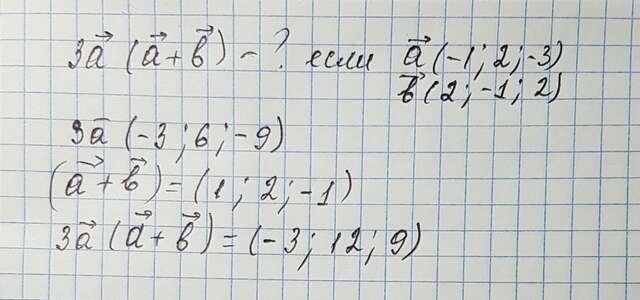 3a⃗ (a⃗ + b⃗) - ? если a⃗ (-1; 2; -3)
b⃗ (2; -1; 2)
3a⃗ (-3; 6; -9)
(a⃗ + b⃗) = (1; 2; -1)
3a⃗ (a⃗ + b⃗) = (-3; 12; 9)